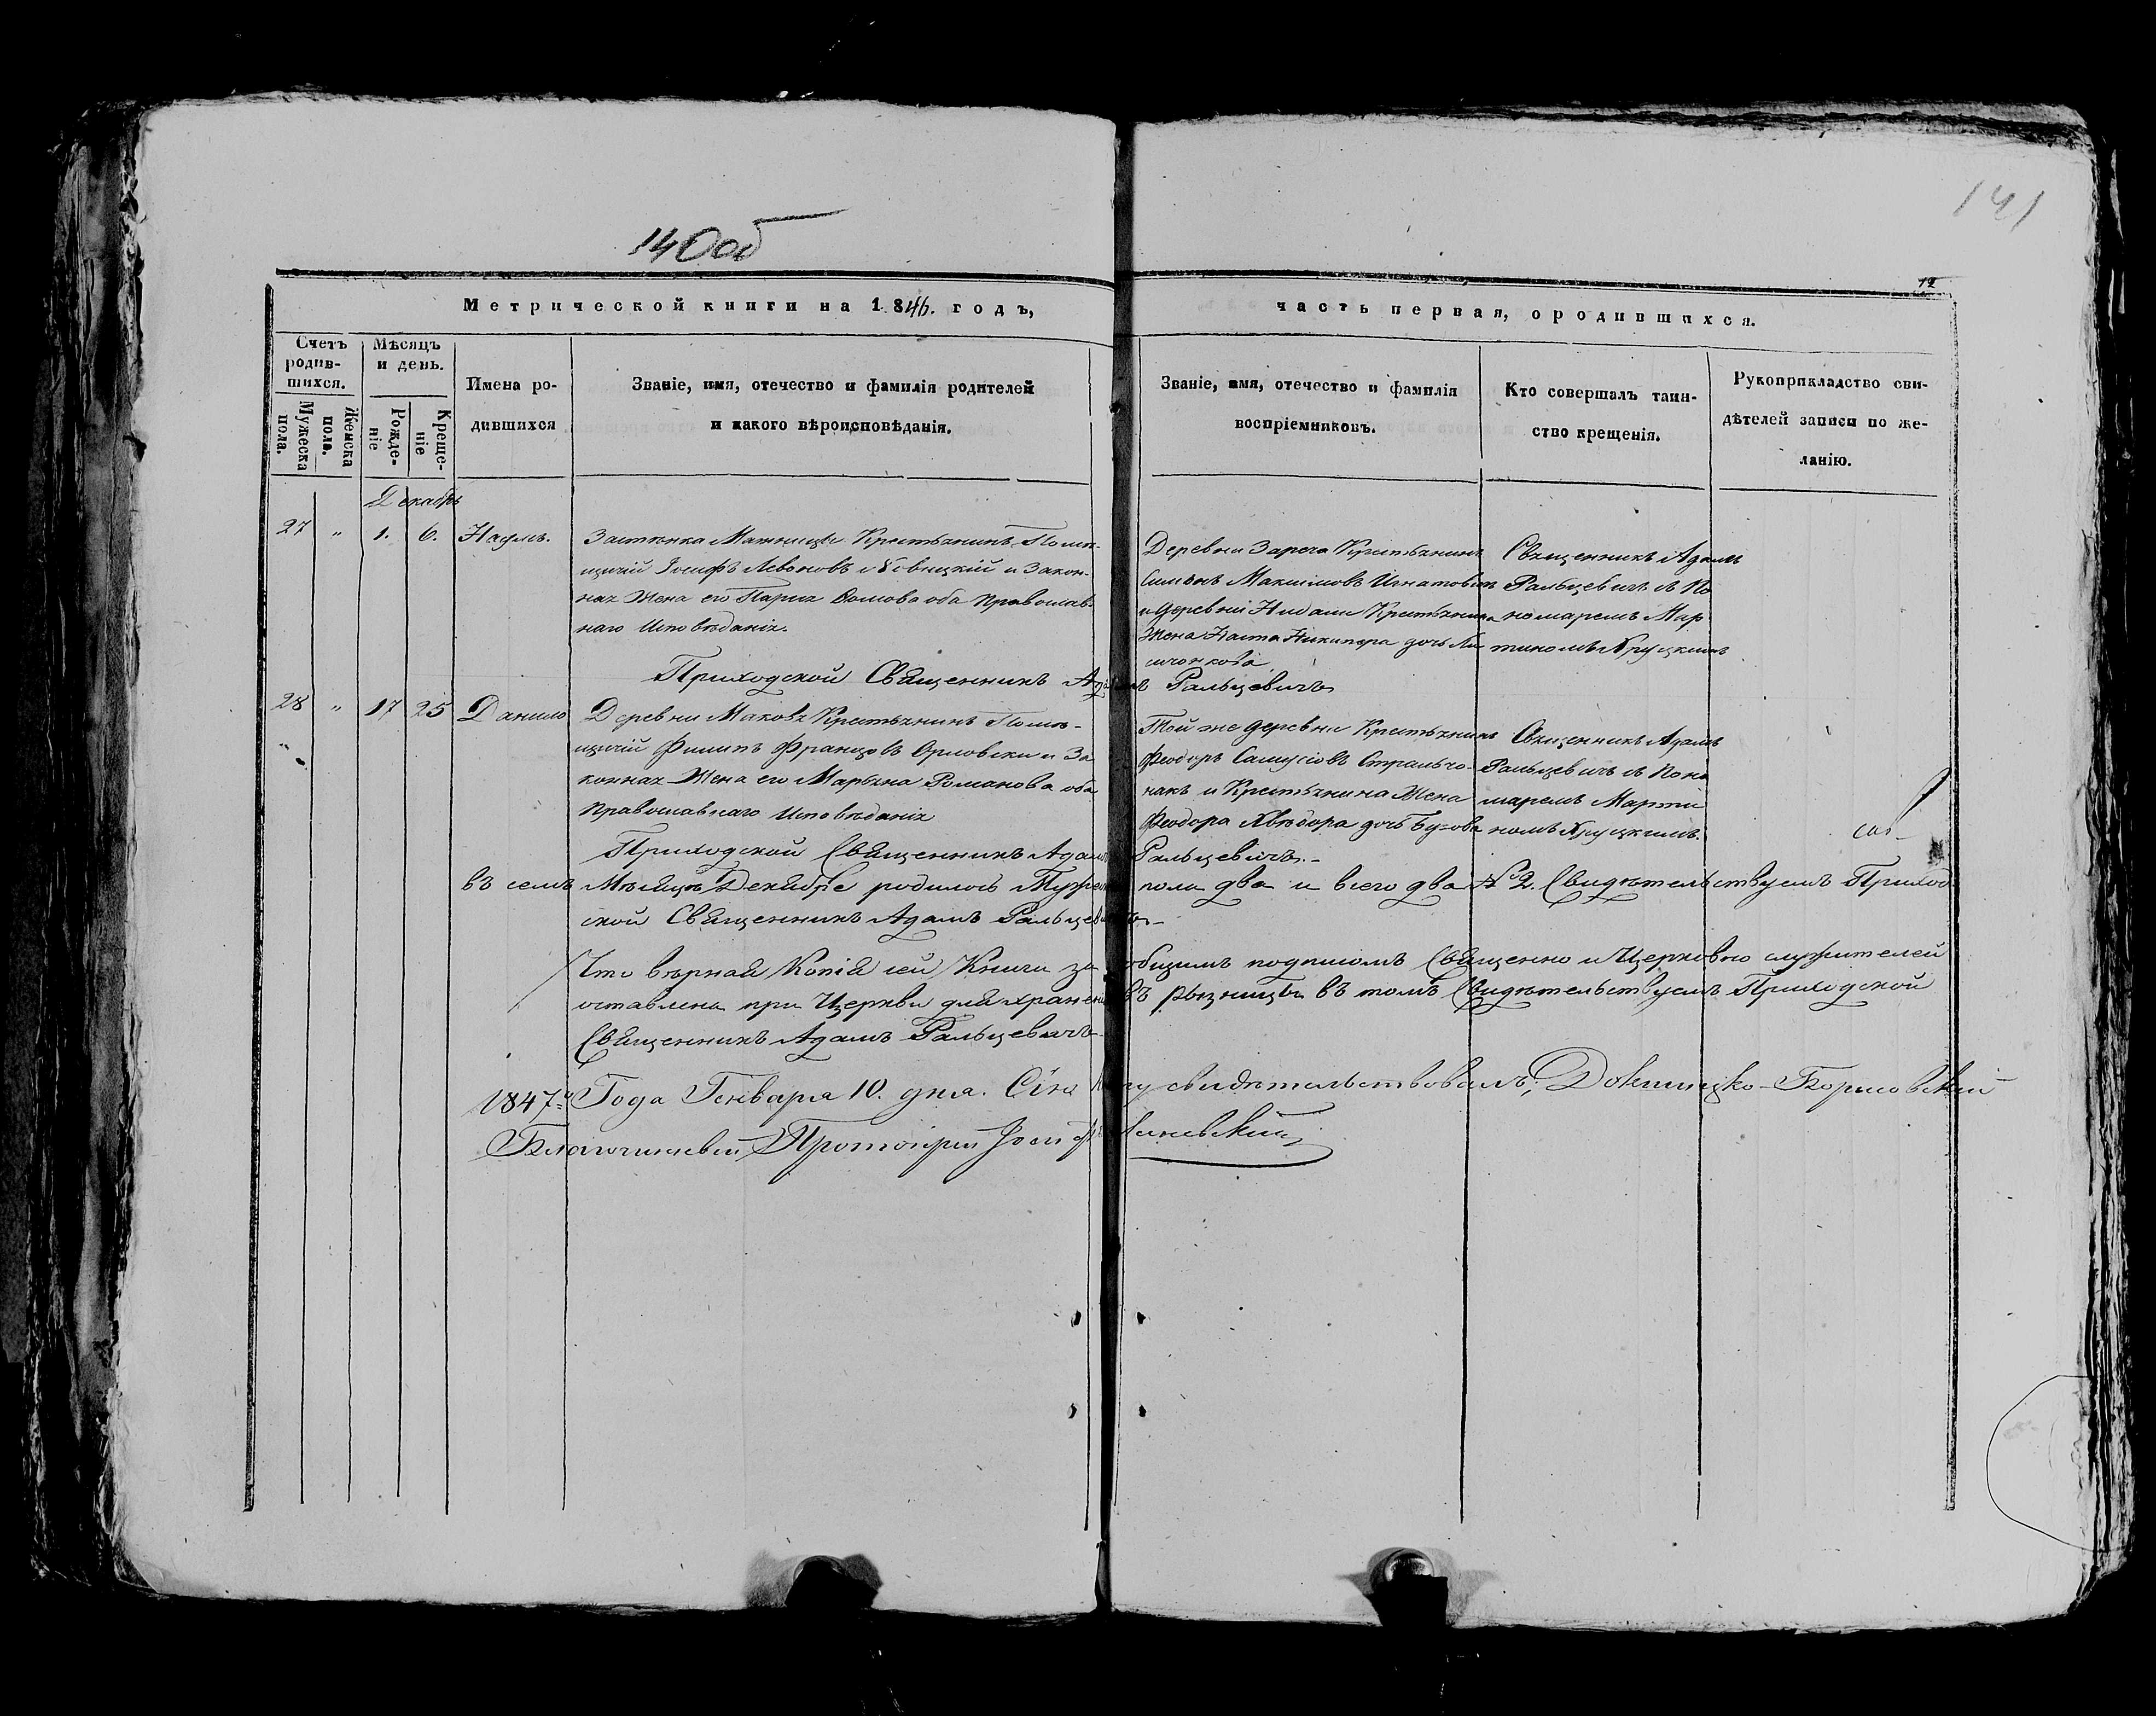 140об
141
12
Метрической книги на 1846. годъ,
часть первая, о родившихся.
Счетъ родив-
шихся.
Мужеска пола.
Женска пола.
Мѣсяцъ и день.
Рожде-
ніе
Креще-
ніе
Имена ро-
дившихся
Званіе, имя, отечество и фамилія родителей
и какого вѣроисповѣданія.
Званіе, имя, отечество и фамилія
воспріемниковъ.
Кто совершалъ таин-
ство крещенія.
Рукоприкладство сви-
дѣтелей записи по же-
ланію.
Декабрь
27 " 1. 6. Наумъ.
Застѣнка Крестьянинъ Помѣ-
щичій Іосифъ Левоновъ и Закон-
ная Жена его оба Православ-
наго Исповѣданія.
Деревни Заречя Крестьянинъ
Симьонъ Максимовъ Игнатовичъ
и деревни Крестьянина
Жена Наста Никипера дочь
Священникъ Адамъ
Ральцевичъ съ По-
номаремъ Мар
тиномъ Хруцкимъ
Приходской Священникъ Адамъ Ральцевичъ
28 " 17 25 Данило
Деревни Маковя Крестьянинъ Помѣ-
щичій Филипъ Францовъ Орловски и За
конная Жена его Марьяна Романова оба
Православнаго Исповѣданія
Той же деревни Крестьянинъ
Феодоръ
накъ и Крестьянина Жена
Феодора дочь
Священникъ Адамъ
Ральцевичъ съ Поно
маремъ Марти
номъ Хруцкимъ.
Приходской Священникъ Адамъ Ральцевичъ.
въ семъ Мѣсяцѣ Декабрѣ родилось Мужеск пола два и всего два № 2. Свидѣтельствуемъ Приход
ской Священникъ Адамъ Ральцевичъ
Что вѣрная Копія сей Книги за общимъ подписомъ Священно и Церковно служителей
оставлена при Церкви для храненія въ рызницы въ томъ Свидѣтельствуемъ Приходской
Священникъ Адамъ Ральцевичъ
1847го Года Генваря 10. дня. Сію Книгу свидѣтельствовалъ, Докшицко-Борисовскій
Благочинный Протоіерей Іосифъ